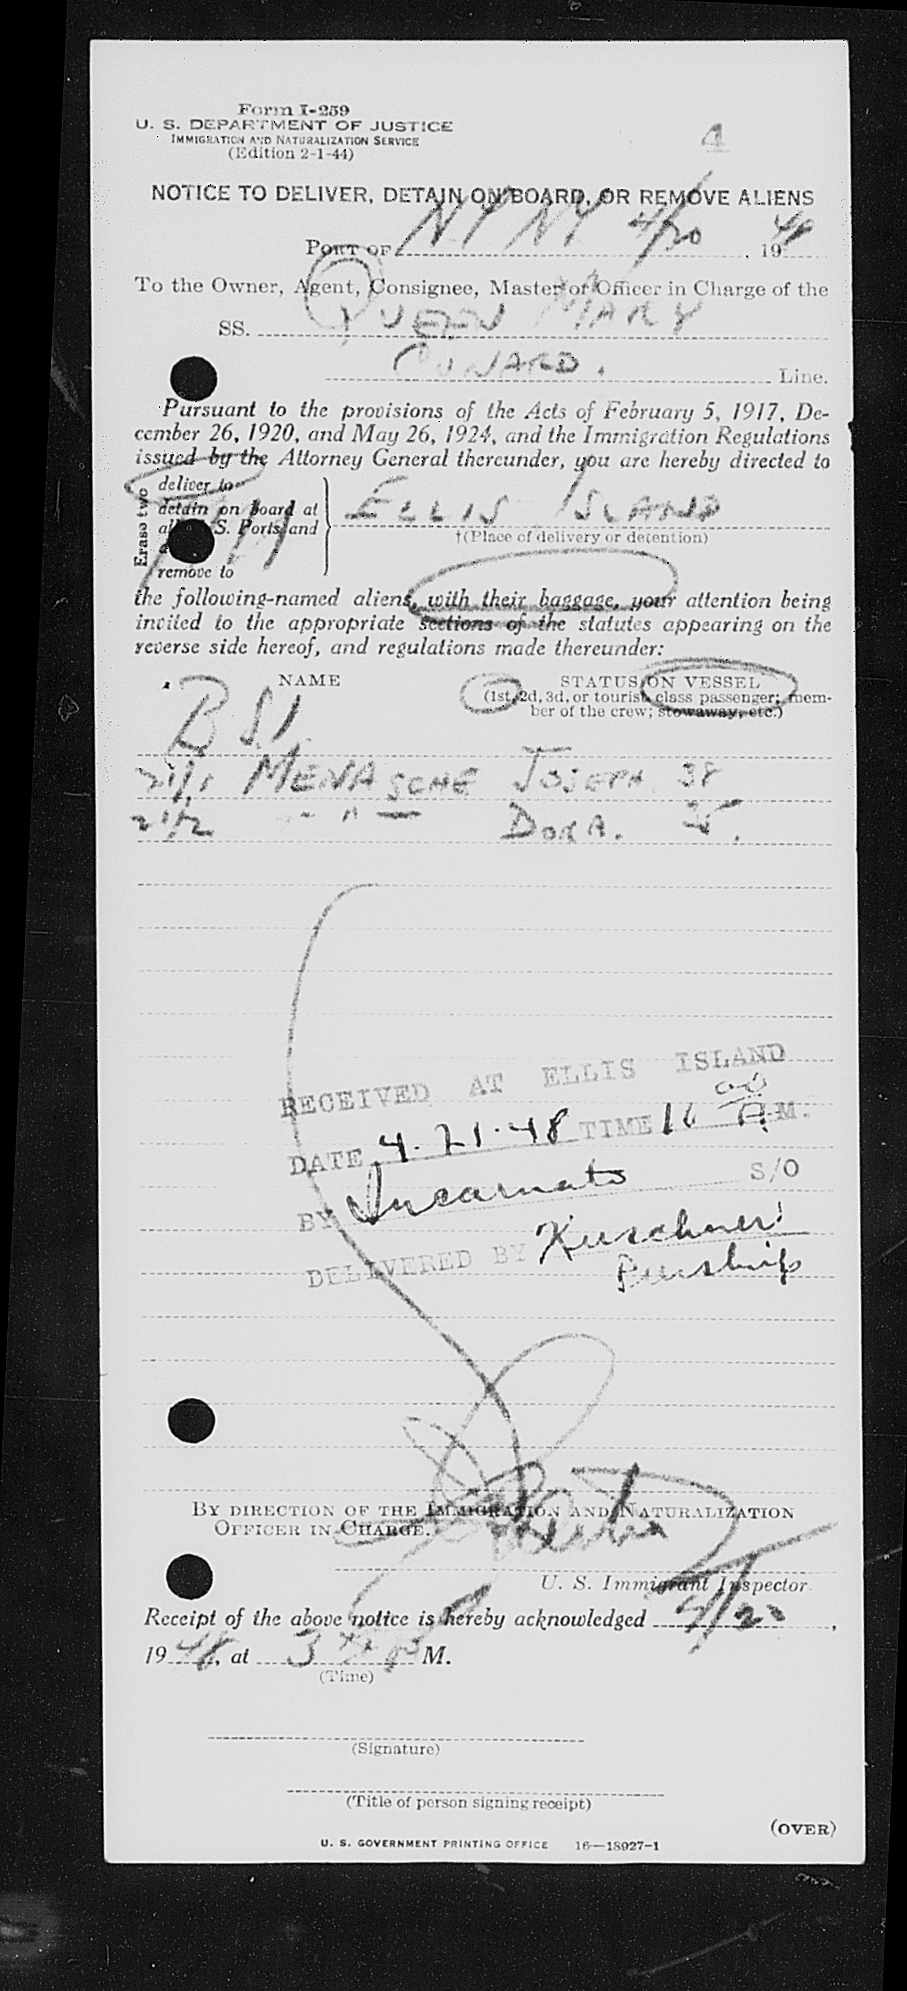 Form I-259
U. S. DEPARTMENT OF JUSTICE
IMMIGRATION AND NATURALIZATION SERVICE
(Edition 2-1-44)
4
NOTICE TO DELIVER, DETAIN ON BOARD, OR REMOVE ALIENS
PORT OF NY NY 4/20, 1948
To the Owner, Agent, Consignee, Master or Officer in Charge of the
SS. QUEEN MARY
CUNARD. Line.
Pursuant to the provisions of the Acts of February 5, 1917, De-
cember 26, 1920, and May 26, 1924, and the Immigration Regulations
issued by the Attorney General thereunder, you are hereby directed to
Erase two
deliver to
detain on board at
S. Ports and
remove to
ELLIS ISLAND
†(Place of delivery or detention)
the following-named aliens, with their baggage, your attention being
invited to the appropriate sections of the statutes appearing on the
reverse side hereof, and regulations made thereunder:
NAME
STATUS ON VESSEL
(1st, 2d, 3d, or tourist class passenger; mem-
ber of the crew; stowaway, etc.)
B S I.
21/1 MENASCHE JOSEPH 38
21/2 - " - DORA.
RECEIVED AT ELLIS ISLAND
DATE 4-21-48 TIME 10 00 A.M.
BY Incarnato S/O
DELIVERED BY Kirschner
BY DIRECTION OF THE IMMIGRATION AND NATURALIZATION
OFFICER IN CHARGE.
U. S. Immigrant Inspector.
Receipt of the above notice is hereby acknowledged 4/20,
1948, at 3 P M.
(Time)
(Signature)
(Title of person signing receipt)
(OVER)
U. S. GOVERNMENT PRINTING OFFICE 16—18927-1